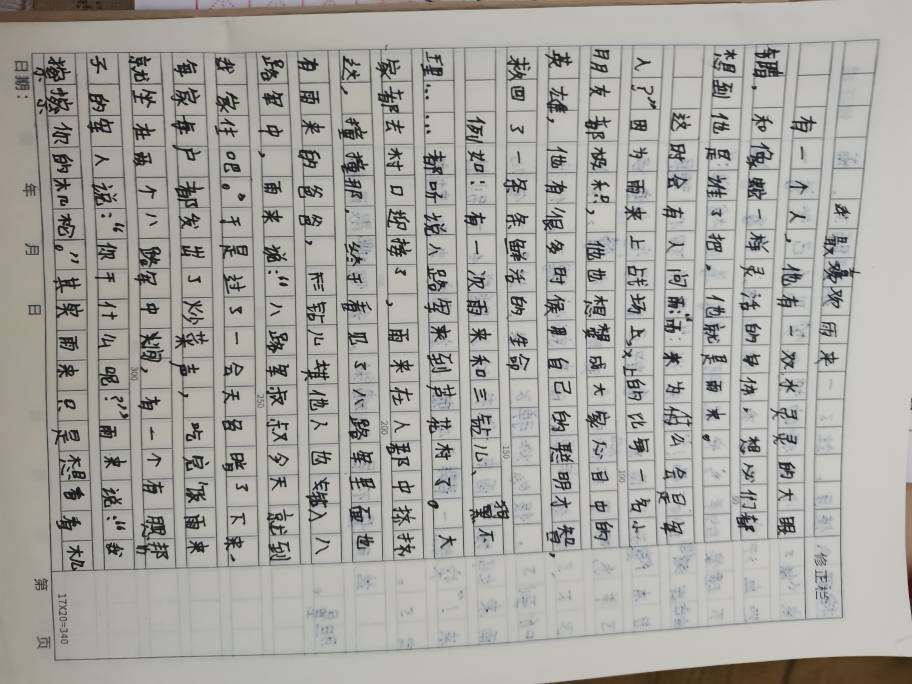 我最喜欢雨来
修正栏
有一个人，他有一双水灵灵的大眼
睛，和像蛇一样灵活的身体。想必们都
想到他是谁了把。他就是雨来。
这时会有人问：“雨来为什么会是军
人？”因为雨来上战场上的比每一名小
朋友都极积，他也想想成大家心目中的
英雄，他有很多时候用自己的聪明才智，
救回了一条条鲜活的生命
例如：有一次雨来和三钻儿、黑不
理……都听说八路军来到芦花村了。大
家都去村口迎接了，雨来在人群中挤找
这，撞撞那，终于看见了八路军里面也
有雨来的爸爸，三钻儿其他人也 入八
路军中，雨来说：“八路军叔叔今天就到
我家住吧。”于是过了一会天各暗了下来，
每家每户都发出了炒菜声，吃完饭雨来
就坐在两个八路军中间，有一个有腮帮
子的军人说：“你干什么呢？”雨来说：“我
擦擦你的机枪。”其实雨来只是想看看机
50
100
150
200
250
300
17X20=340
日期： 年 月 日
第 页